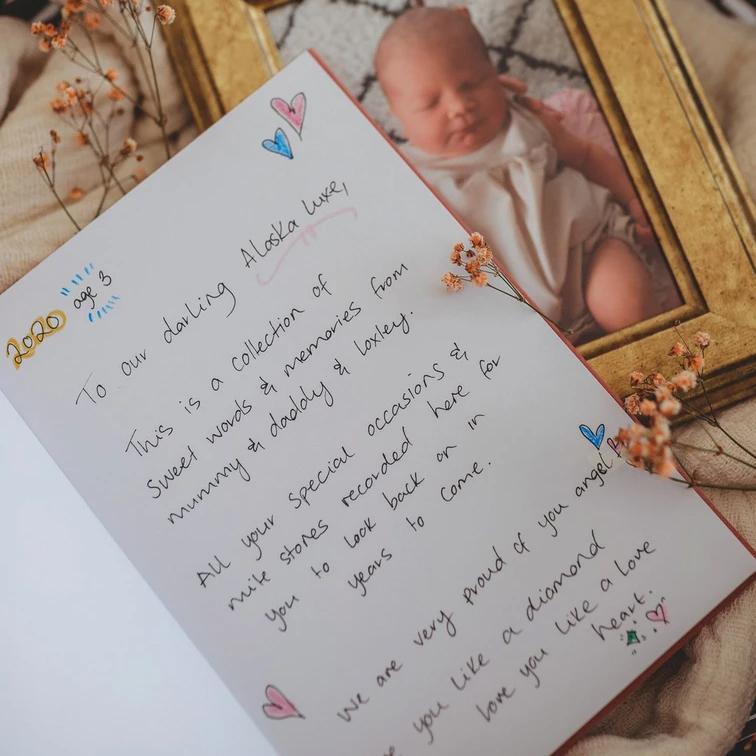 2020 age 3
To our darling Alaska Luxe,
This is a collection of
sweet words & memories from
mummy & daddy & Loxley.
All your special occasions &
mile stones recorded here for
you to look back on in
years to come.
We are very proud of you angel
you like a diamond
love you like a love
heart.